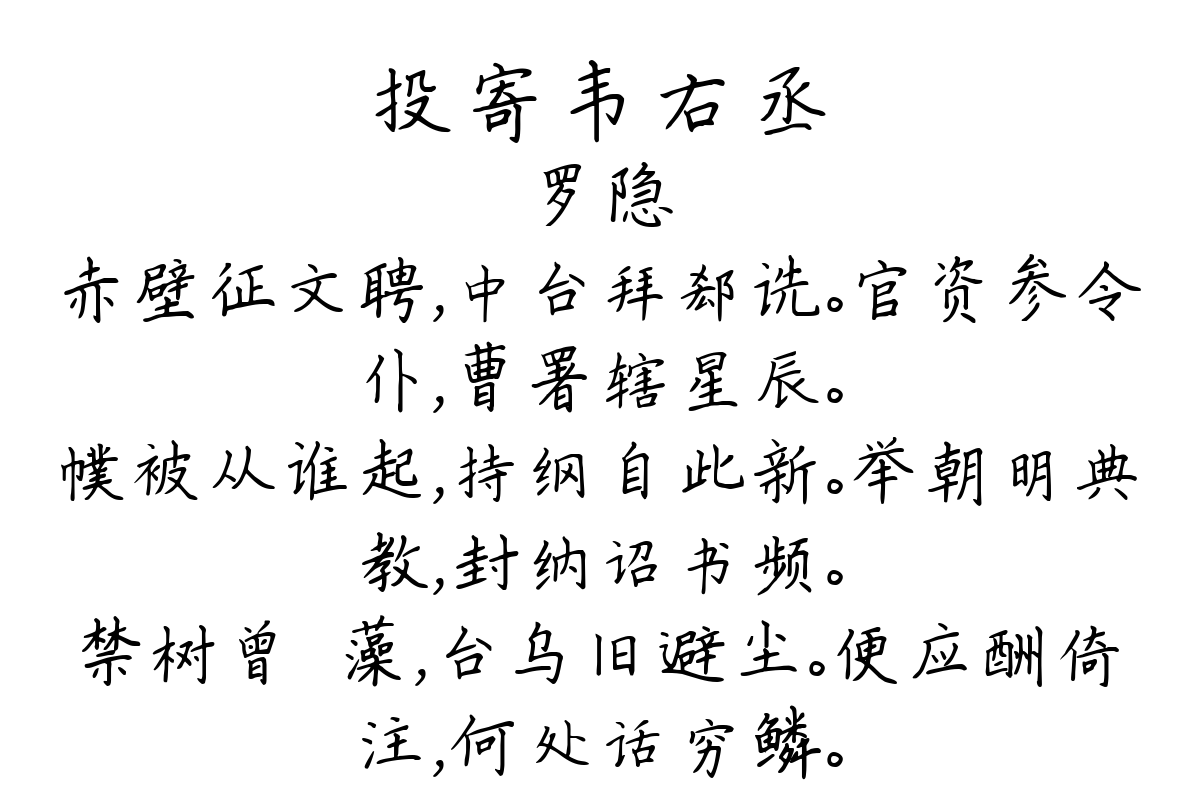 投寄韦右丞
罗隐
赤壁征文聘,中台拜郄诜。官资参令
仆,曹署辖星辰。
幞被从谁起,持纲自此新。举朝明典
教,封纳诏书频。
禁树曾 藻,台乌旧避尘。便应酬倚
注,何处话穷鳞。